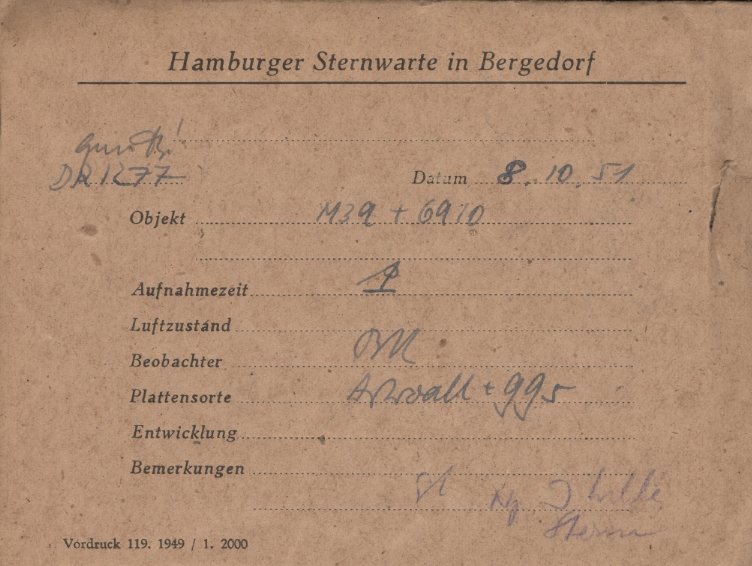 Hamburger Sternwarte in Bergedorf
DR 1277
Datum 8. 10. 51
Objekt M39 + 6910
Aufnahmezeit
Luftzustand
Beobachter
Plattensorte + 995
Entwicklung
Bemerkungen
helle
Sterne
Vordruck 119. 1949 / 1. 2000